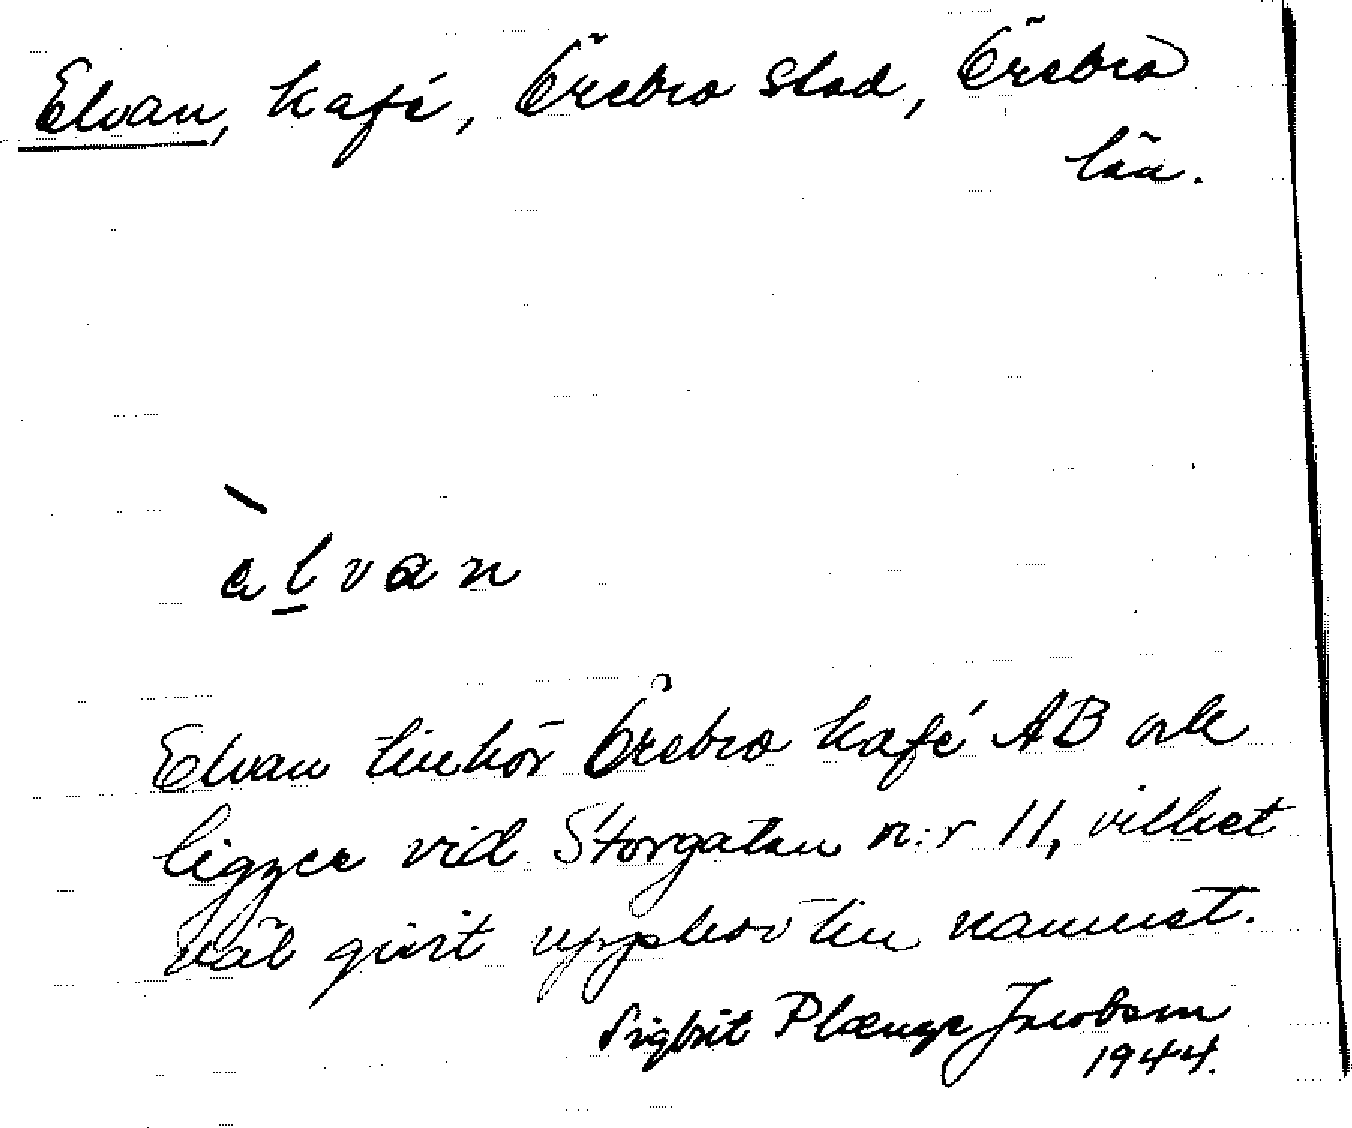 Elvan, kafé, Örebro stad, Örebro
län.
èlvan
Elvan tillhör Örebro kafé AB och
ligger vid Storgatan n:r 11, vilket
väl givit upphov till namnet.
Sigbrit Plænge Jacobson
1944.